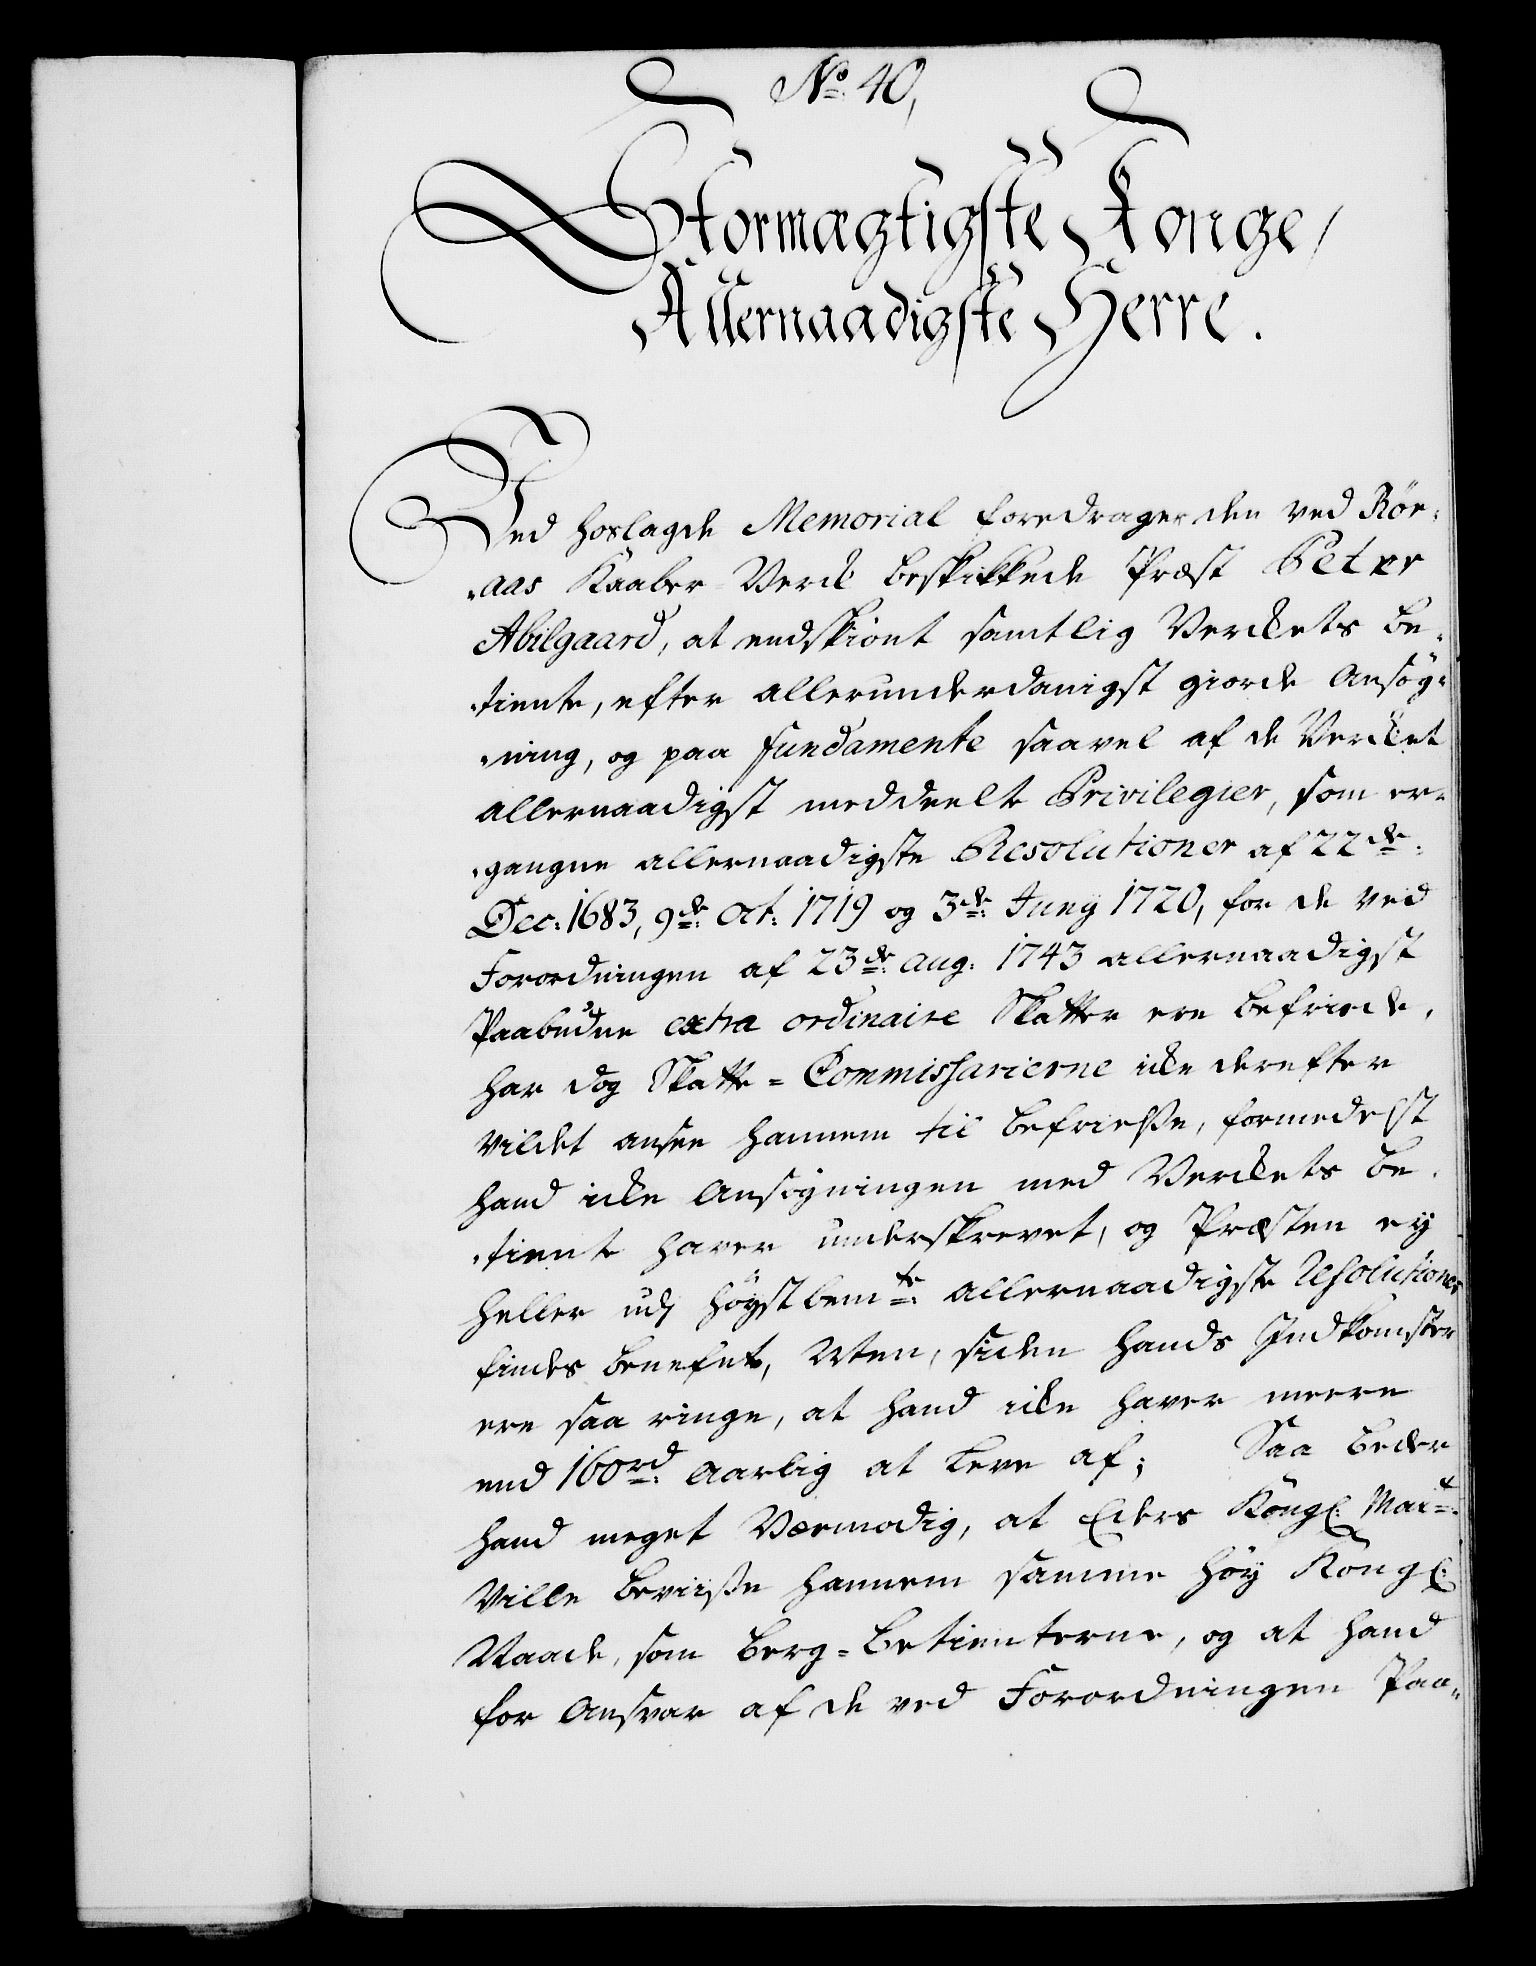 No: 40,
Stormægtigste Konge/
Allernaadigste Herre.
Ved hoslagde Memorial foredrager den ved Rör-
-aas Kaaber-Verck beskikkede Præst Peter
Abilgaard, at endskiönt samtlig Verckets be-
-tiente, efter allerunderdanigst giorde Ansøg-
-ning, og paa fundamente saavel af de Vercket
allernaadigst meddeelte Privilegier, som er-
-gangne allernaadigste Resolutioner af 22de:
Dec: 1683, 9de: Oct: 1719 og 3de: Juny 1720, for de ved
Forordningen af 23de: Aug: 1743 allernaadigst
Paabudne extra ordinaire Skatter ere befriede,
har dog Skatte-Commissarierne icke derefter
vildet ansee hannem til befrielse, formedelst
hand icke Ansögningen med Verckets be-
-tiente haver underskrevet, og Præsten ey
heller udj höystbemte: allernaadigste Resolutioner
findes benefnt, Men, siden hands Indkomster
ere saa ringe, at hand icke haver meere
end 160rd: Aarlig at leve af; Saa beder
hand meget Veemodig, at Eders Kongl: Mait:
Ville beviise hannem samme höy Kongl:
Naade, som Berg-Betienterne, og at hand
for Ansvar af de ved Forordningen Paa-